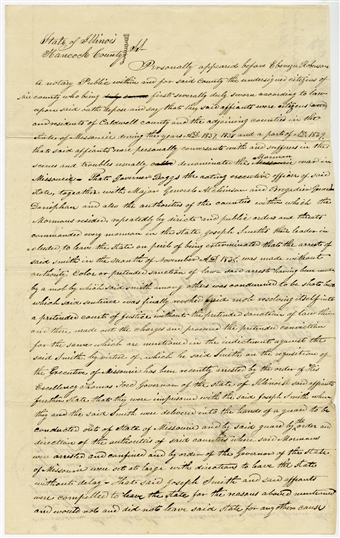 State of Illinois
Hancock County } Sct
Personally appeared before Ebenezer Robinson
a notary Public within and for said county the undersigned citizens of
said county who being first severally duly sworn according to law
upon said oath depose and say that they said affiants were citizens
and residents of Caldwell county and the adjoining counties in the
State of Missouri during the years A.D. 1837, 1838 and a part of A.D. 1839
that said affiants were personally conversants with and suffered in the
scenes and troubles usually denominated the Mormon war in
Missouri - That Governor Boggs the acting executive officer of said
State, together with Major General Atchinson and Brigadier General
Doniphan and also the authorities of the counties within which the
Mormans resided, repeatedly by directs and public orders and threats
commanded every mormon in the State, Joseph Smith their leader in
cluded to leave the State on peril of being exterminated that the arrests of
said Smith in the month of November A.D. 1838, was made without
authority Color or pretended sanction of law said arrest having been made
by a mob by which said Smith among others was condemned to be shot
which said sentence was finally mob resolving itself into
a pretended court of Justice without the pretended sanction of law then
and there made out the charges and procured the pretended conviction
for the same which are mentioned in the indictment against the
said Smith by virtue of which he said Smith on the requisition of
the Executive of Missouri has been recently arrested by the order of His
Excellency Thomas Ford Governor of the State of Illinois said affiants
further State that they were imprisoned with the said Joseph Smith when
they and the said Smith were delivered into the hands of a guard to be
conducted out of State of Missouri and by said guard by the order and
direction of the authorities of said counties where said Mormans
were arrested and confined and by order of the Governor of the State
of Missouri were set at large with directions to leave the State
without delay - That said Joseph Smith and said affiants
were compelled to leave the State for the reasons above mentioned
and would not and did not leave said State for any other cause